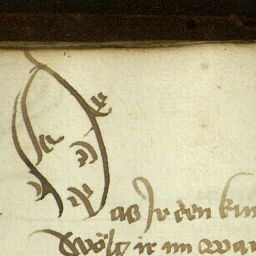 das Ir den kun
Wölt ir im wa